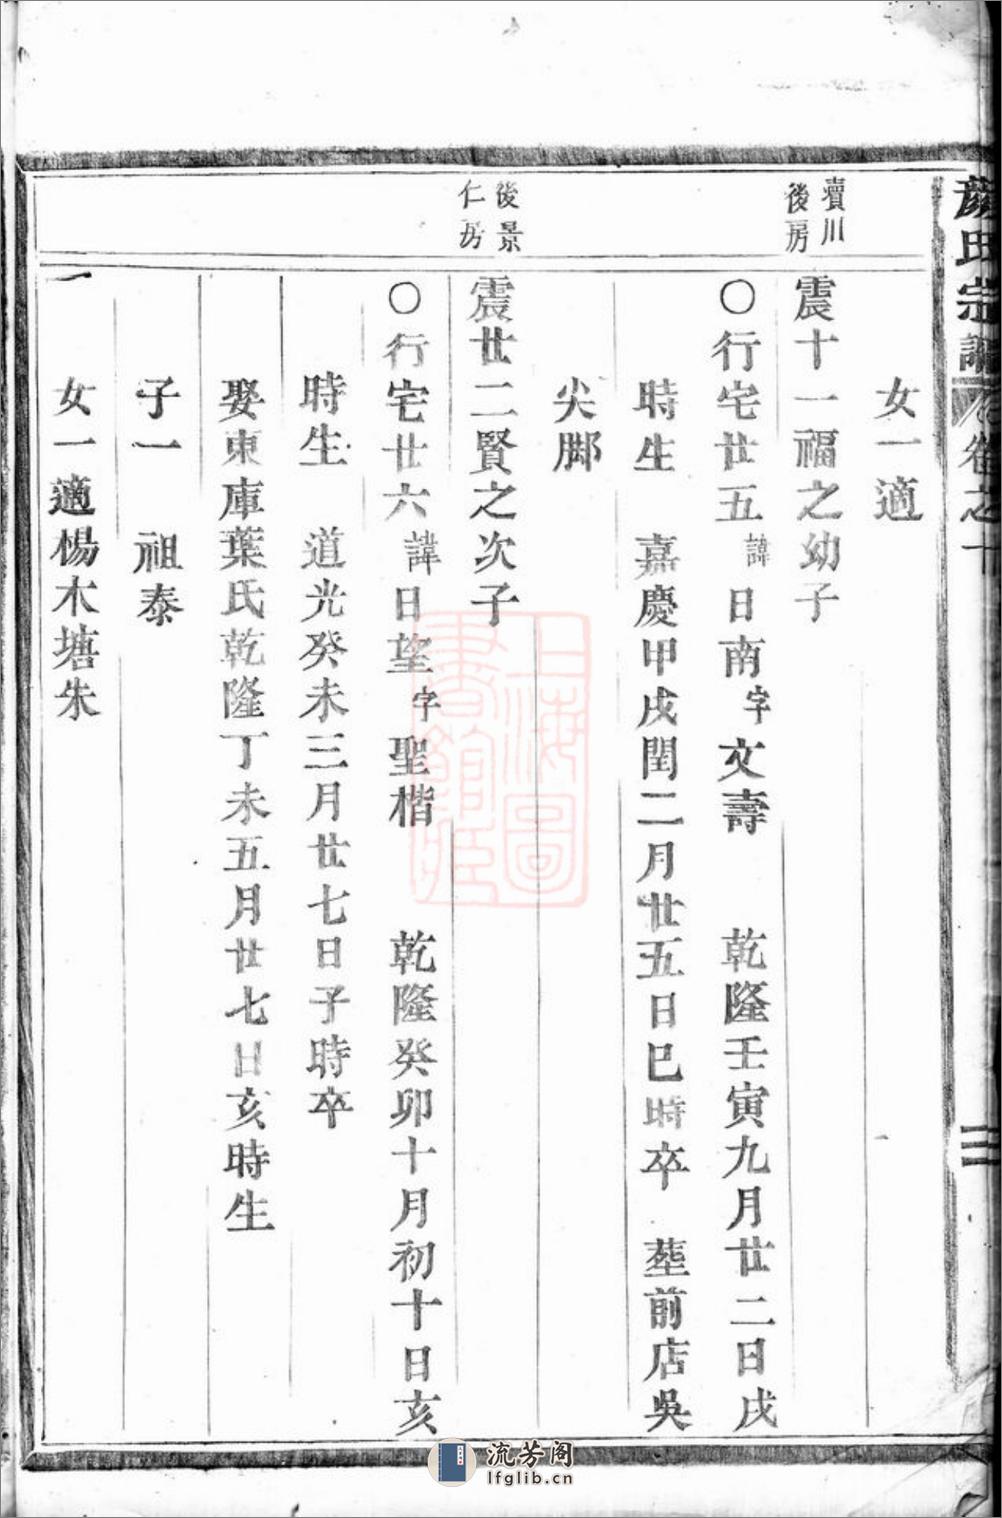 氏宗譜 卷之十 三
女一適
賣川後房
震十一福之幼子
〇行宅廿五諱日南字文壽 乾隆壬寅九月廿二日戌
時生 嘉慶甲戌閏二月廿五日巳時卒 塟前店吳
尖脚
後景仁房
震廿二賢之次子
〇行宅廿六諱日望字聖楷 乾隆癸卯十月初十日亥
時生 道光癸未三月廿七日子時卒
娶東庫葉氏乾隆丁未五月廿七日亥時生
子一 祖泰
女一適楊木塘朱
上海圖書館藏
流芳阁
lfglib.cn